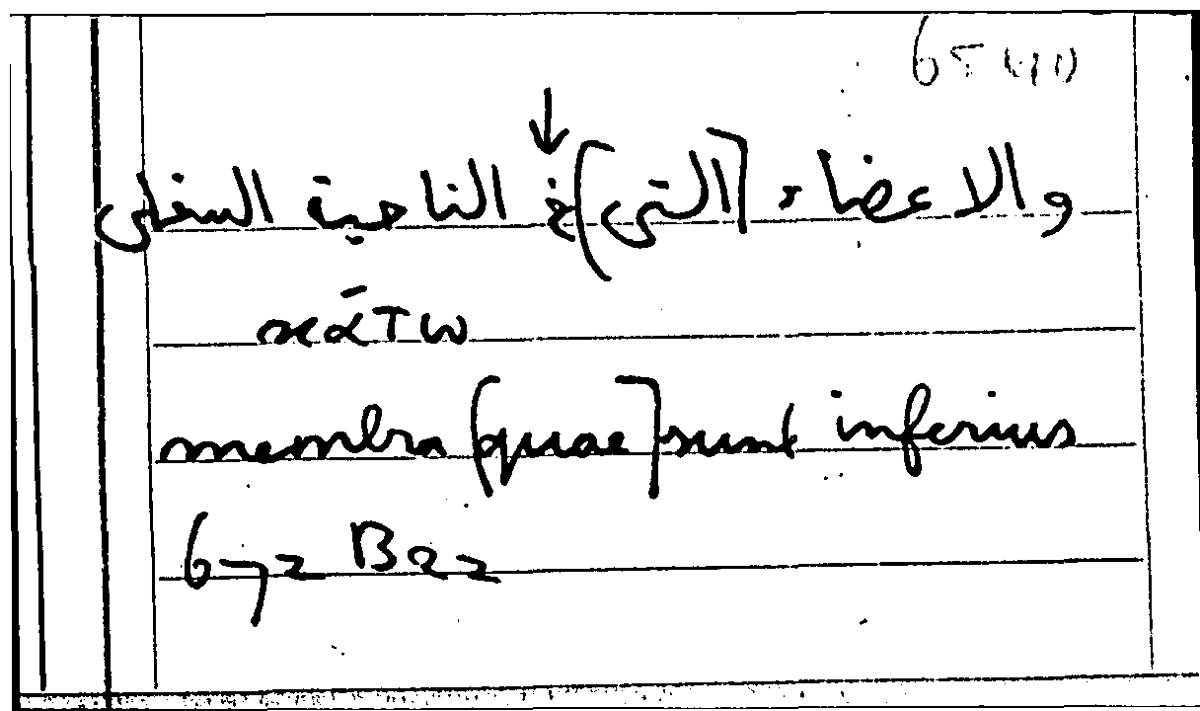 والاعضاء [التى] فى الناحية السفلى
κάτω
membra [quae] sunt inferius
672 B22